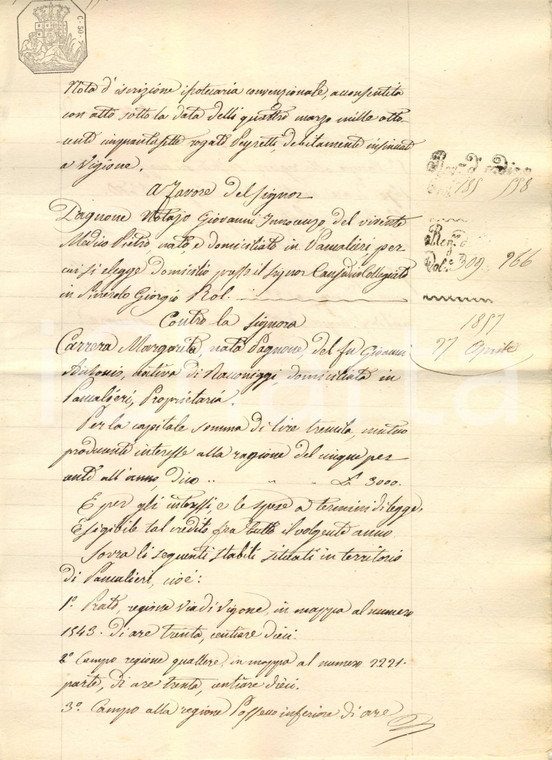 C. 50
Nota d'iscrizione ipotecaria convenzionale, acconsentita
con atto sotto la data delli quattro marzo mille otto
centi cinquantasette rogato Peyretti, debitamente insinuato
a Vigone.
A favore del signor
Pagnone Notajo Giovanni Innocenzo del vivente
Medico Pietro nato e domiciliato in Pancalieri per
cui si elegge domicilio presso il signor Causidico Collegiato
in Pinerolo Giorgio Rol.
Contro la signora
Carrera Margarita, nata Pagnone, del fu Giovanni
Antonio, nativa di Racconiggi, domiciliata in
Pancalieri, Proprietaria.
Per la capitale somma di lire tremila, mutuo
producente interesse alla ragione del cinque per
cento all'anno, dico .. " " £ 3000.
E per gli interessi, e le spese a termini di legge,
Esigibile tal credito fra tutto il volgente anno
Sovra li seguenti stabili situati in territorio
di Pancalieri, cioè:
1° Prato, regione via di Vigone, in mappa al numero
1543. di are trenta, centiare dieci.
2° Campo regione in mappa al numero 2221.
parte, di are trenta, centiare dieci.
3° Campo alla regione inferiore di are
185 158
Vol. 309. 266
1857
27 Aprile